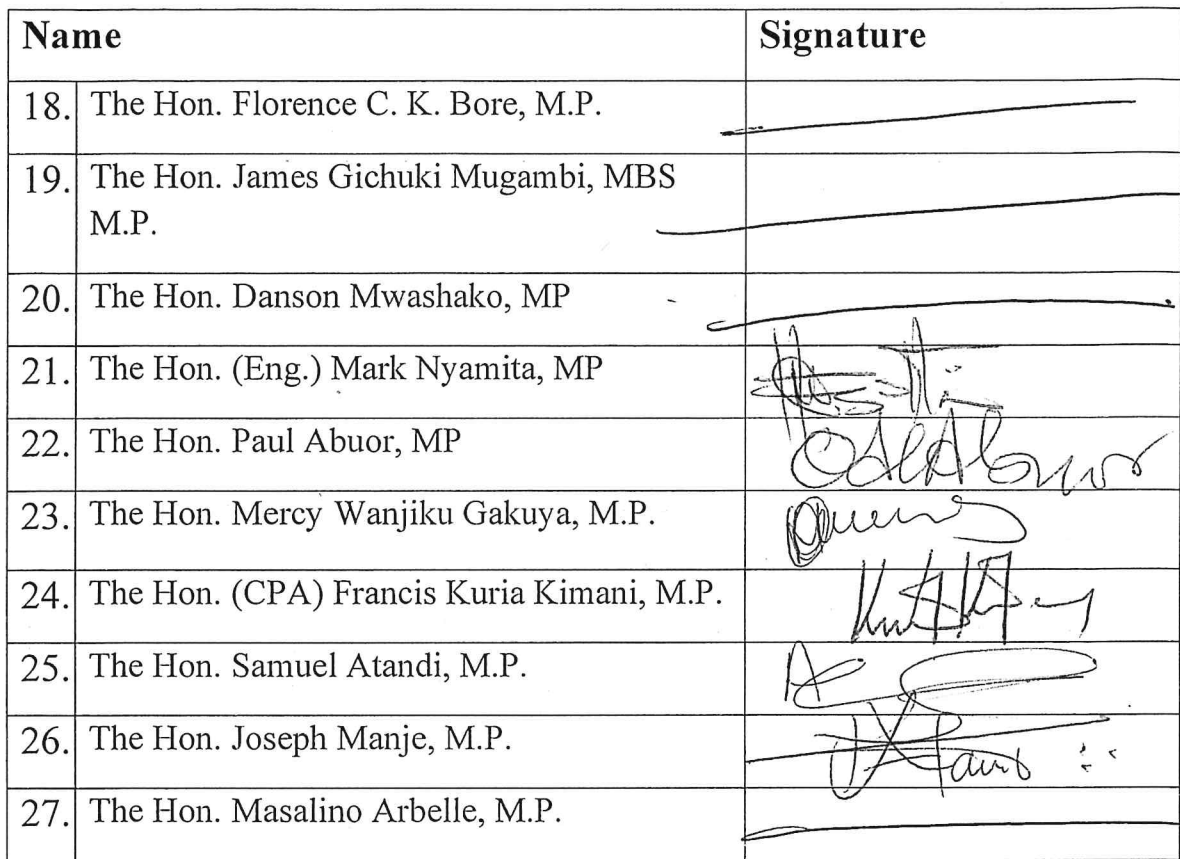 Name Signature
18. The Hon. Florence C. K. Bore, M.P.
19. The Hon. James Gichuki Mugambi, MBS
M.P.
20. The Hon. Danson Mwashako, MP
21. The Hon. (Eng.) Mark Nyamita, MP
22. The Hon. Paul Abuor, MP
23. The Hon. Mercy Wanjiku Gakuya, M.P.
24. The Hon. (CPA) Francis Kuria Kimani, M.P.
25. The Hon. Samuel Atandi, M.P.
26. The Hon. Joseph Manje, M.P.
27. The Hon. Masalino Arbelle, M.P.